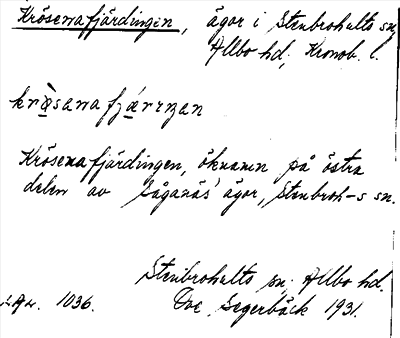 Krösenafjärdingen, ägor i Stenbrohults sn,
Allbo hd, Kronob. l.
krösenafjärdingen, öknamn på östra
delen av Såganäs' ägor, Stenbroh-s sn.
Stenbrohults sn, Allbo hd.
1036. Ove Segerbäck 1931.